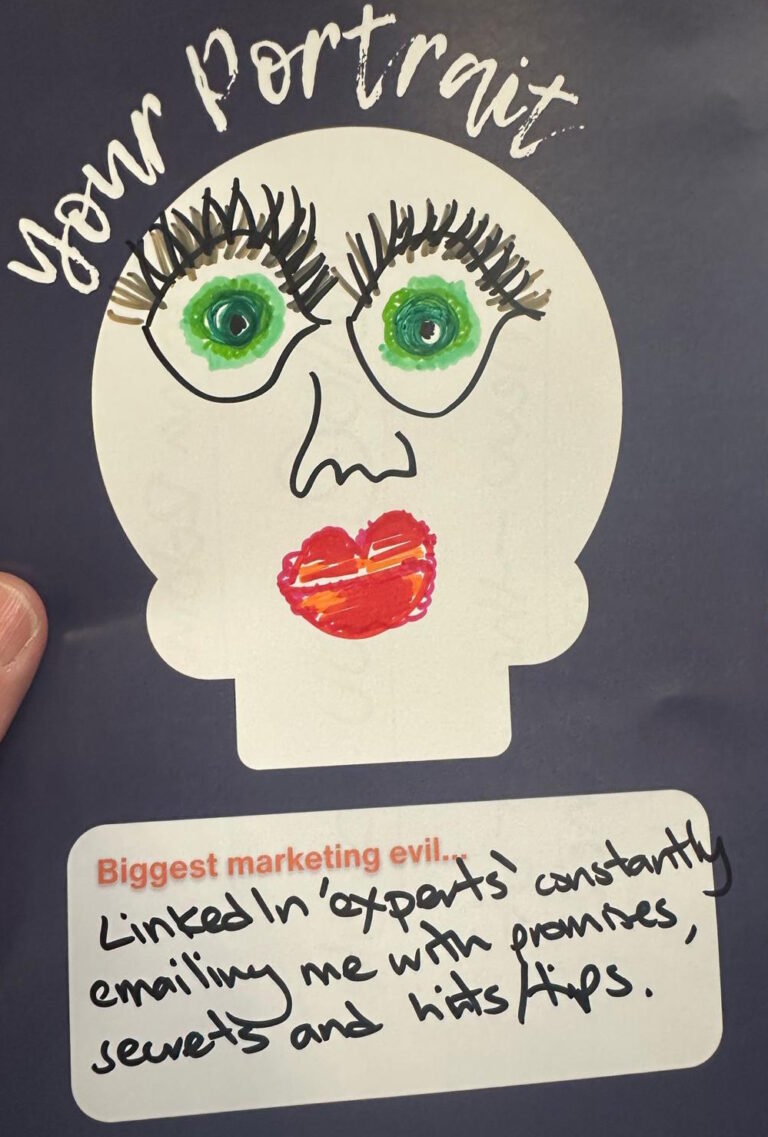 Your Portrait
Biggest marketing evil...
LinkedIn 'experts' constantly
emailing me with promises,
secrets and hints/tips.